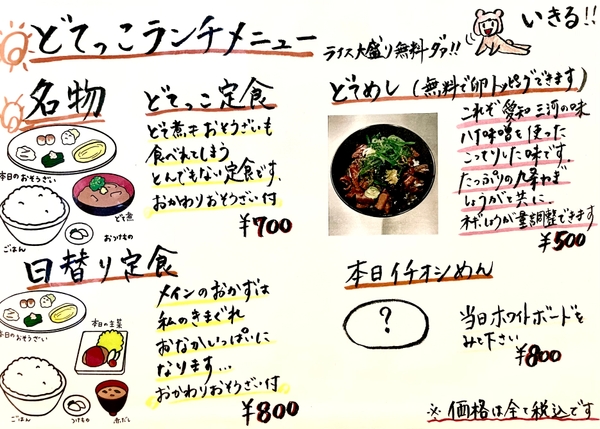 どてっこランチメニュー
ライス大盛り無料ダァ!!
いきる!!
名物
どてっこ定食
どて煮もおそうざいも
食べれてしまう
とんでもない定食です、
おかわりおそうざい付
¥700
本日のおそうざい
どて煮
ごはん
おつけもの
どてめし(無料で卵トッピングできます)
これぞ愛知三河の味
八丁味噌を使った
こってりした味です。
たっぷりの九条ねぎ
しょうがと共に。
ネギしょうが量調整できます
¥500
日替り定食
メインのおかずは
私のきまぐれ
おなかいっぱいに
なります…
おかわりおそうざい付
¥800
本日のおそうざい
本日の主菜
ごはん
つけもの
赤だし
本日イチオシめん
?
当日ホワイトボードを
みて下さい
¥800
※価格は全て税込です